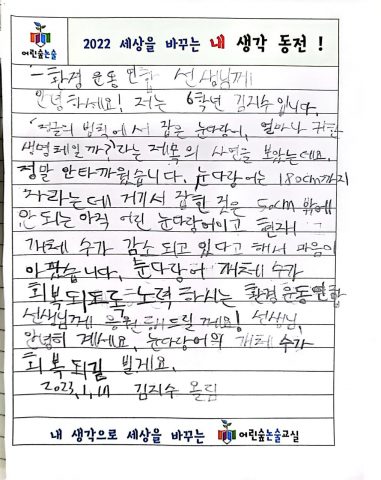 어린숲논술
2022 세상을 바꾸는 내 생각 동전 !
- 환경 운동 연합 선생님께
안녕하세요! 저는 6학년 김지수입니다.
'정글의 법칙에서 잡은 눈다랑어, 얼마나 귀한
생명체일까?'라는 제목의 사연을 보았는데요.
정말 안타까웠습니다. 눈다랑어는 180cm까지
자라는데 거기서 잡힌 것은 50cm 밖에
안 되는 아직 어린 눈다랑어이고 현재
개체 수가 감소 되고 있다고 해서 마음이
아팠습니다. 눈다랑어 개체 수가
회복되도록 노력 하시는 환경운동연합
선생님께 응원 해드릴게요! 선생님,
안녕히 계세요. 눈다랑어의 개체 수가
회복되길 빌게요.
2023, 1, 17 김지수 올림
내 생각으로 세상을 바꾸는 어린숲논술교실